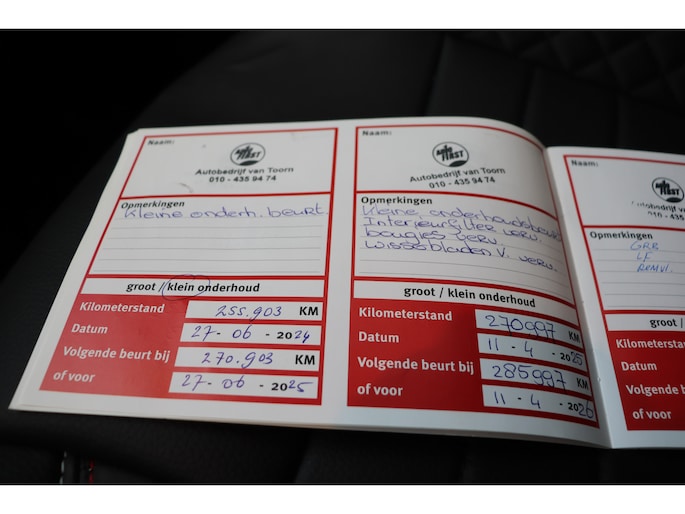 Naam:
auto FIRST
Autobedrijf van Toorn
010 - 435 94 74
Opmerkingen
Kleine onderh. beurt.
groot / klein onderhoud
Kilometerstand 255.903 KM
Datum 27-06-2024
Volgende beurt bij 270.903 KM
of voor 27-06-2025
Naam:
auto FIRST
Autobedrijf van Toorn
010 - 435 94 74
Opmerkingen
Kleine onderhoudsbeurt
Interieurfilter verv.
bougies verv.
wisserbladen v. verv.
groot / klein onderhoud
Kilometerstand 270997 KM
Datum 11-4-2025
Volgende beurt bij 285997 KM
of voor 11-4-2026
Naam:
auto FIRST
Autobedrijf va
010 - 435
Opmerkingen
GRB
LF
REMVL.
groot /
Kilometerstand
Datum
Volgende b
of voor